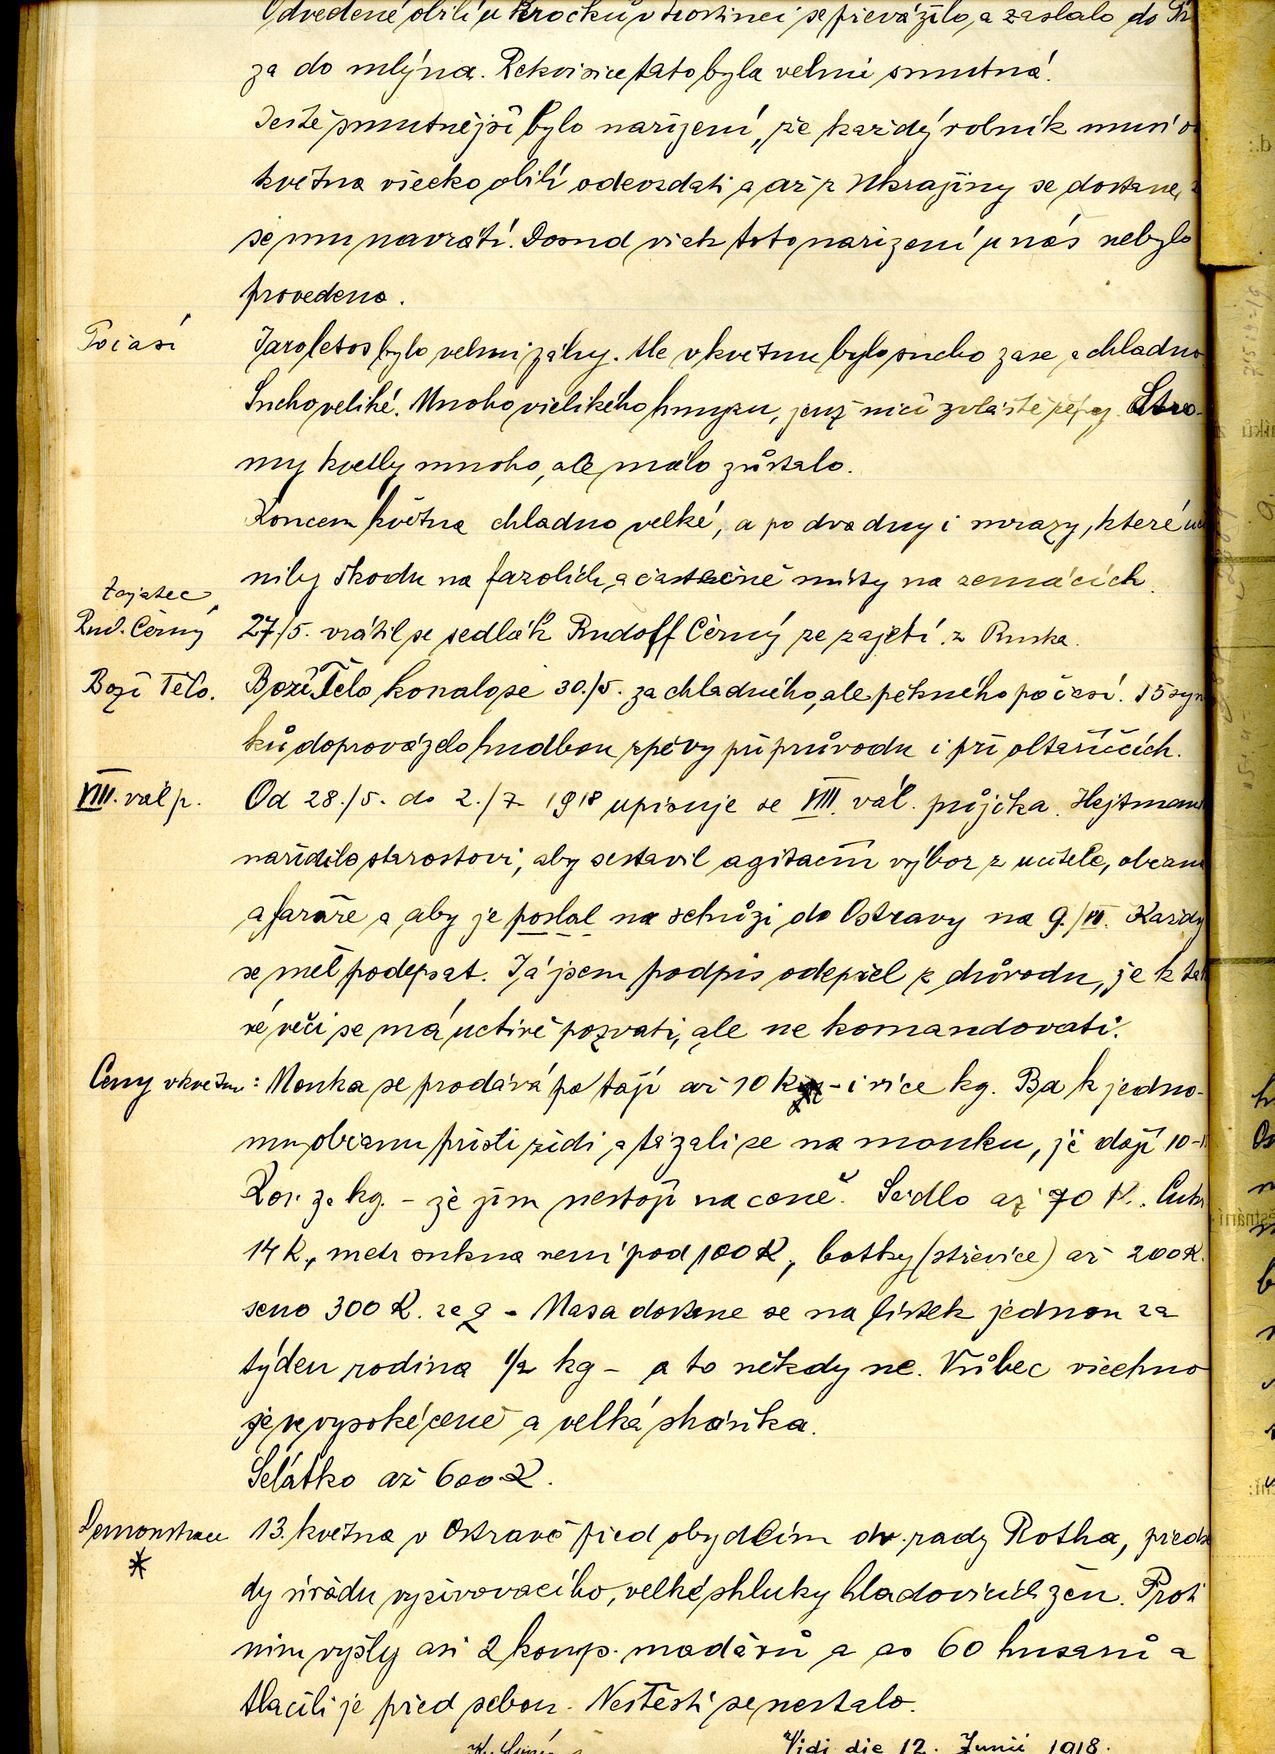 Odvedené obilí u Kročků v hostinci se převážilo, a zaslalo do
za do mlýna. Rekvisice tato byla velmi smutná.
Ještě smutnější bylo nařízení, že každý rolník musí
května všecko obilí odevzdati a až z Ukrajiny se dostane,
se mu navrátí. Dosud však toto nařízení u nás nebylo
provedeno.
Počasí
Jaro letos bylo velmi záhy. Ale v květnu bylo sucho zase, a chladno
Sucho veliké. Mnoho všelikého hmyzu, jenž ničí zvláště řepy. Stro-
my kvetly mnoho, ale málo zůstalo.
Koncem května chladno velké, a po dva dny i mrazy, které uči
nily škodu na fazolích a částečně místy na zemácích.
Zajatec
Rud. Černý
27/5. vrátil se sedlák Rudolf Černý ze zajetí z Ruska.
Boží Tělo.
Boží Tělo konalo se 30./5. za chladného, ale pěkného počasí. 15 syn
ků doprovázelo hudbou zpěvy při průvodu i při oltaříčcích.
VIII. vál p.
Od 28./5. do 2./7 1918 upisuje se VIII. vál. půjčka. Hejtmans
nařídilo starostovi, aby sestavil agitační výbor z učitele, občanů
a faráře a aby je poslal na schůzi do Ostravy na 9./VI. Každý
se měl podepsat. Já jsem podpis odepřel z důvodu, že k tako
vé věci se má uctivě pozvati, ale ne komandovati.
Ceny v květnu:
Mouka se prodává po tají až 10 K – i více kg. Ba k jedno-
mu občanu přišli židi a tázali se na mouku, že dají 10-
Kor. za kg. – že jim nestojí na ceně. Sádlo až 70 K. Cukr
14 K., metr sukna není pod 100 K, botky (střevíce) až 200 K.
seno 300 K. za q – Masa dostane se na lístek jednou za
týden rodina 1/2 kg – a to někdy ne. Vůbec všechno
je ve vysoké ceně a velká sháňka.
Selátko až 600 K.
Demonstrace
*
13. května v Ostravě před obydlím dv. rady Rotha, předse
dy úřadu vyživovacího, velké shluky hladovících žen. Proti
nim vyšly asi 2 komp. maďarů a as 60 husarů a
tlačili je před sebou. Neštěstí se nestalo.
Vidi die 12. Junii 1918.